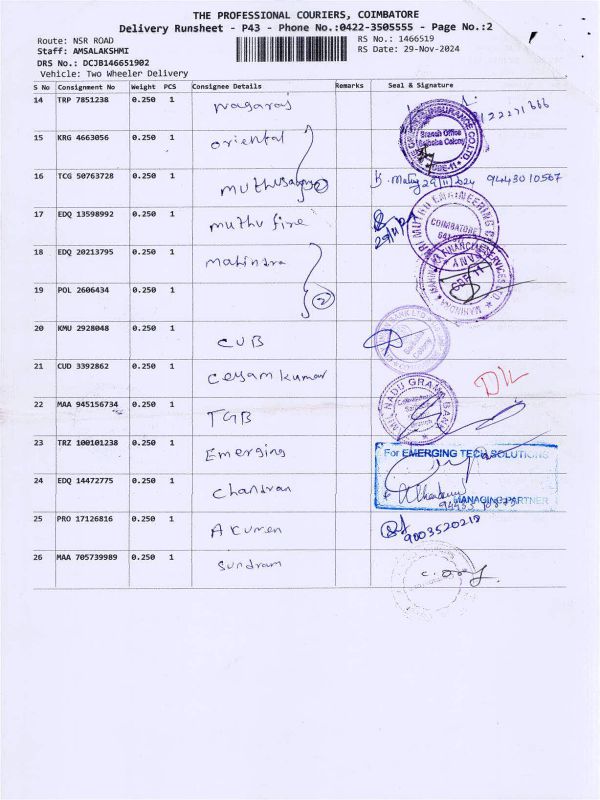 THE PROFESSIONAL COURIERS, COIMBATORE
Delivery Runsheet - P43 - Phone No.:0422-3505555 - Page No.:2
Route: NSR ROAD
RS No.: 1466519
Staff: AMSALAKSHMI
RS Date: 29-Nov-2024
DRS No.: DCJB146651902
Vehicle: Two Wheeler Delivery
S No Consignment No Weight PCS Consignee Details Remarks Seal & Signature
14 TRP 7851238 0.250 1 nagaraj
15 KRG 4663056 0.250 1 oriental
Branch Office
Saibaba Colony
16 TCG 50763728 0.250 1 2 29/11/2024 9443010567
17 EDQ 13598992 0.250 1 muthu fire
COIMBATORE
18 EDQ 20213795 0.250 1 mahindra
19 POL 2606434 0.250 1 2
20 KMU 2928048 0.250 1 CUB
21 CUD 3392862 0.250 1 ceyam kumar D/L
22 MAA 945156734 0.250 1 TGB
TAMIL NADU GRAMA BANK
23 TRZ 100101238 0.250 1 Emerging
For EMERGING TECH SOLUTIONS
24 EDQ 14472775 0.250 1 chandran
MANAGING PARTNER
25 PRO 17126816 0.250 1 Akumen 9003520218
26 MAA 705739989 0.250 1 Sundram